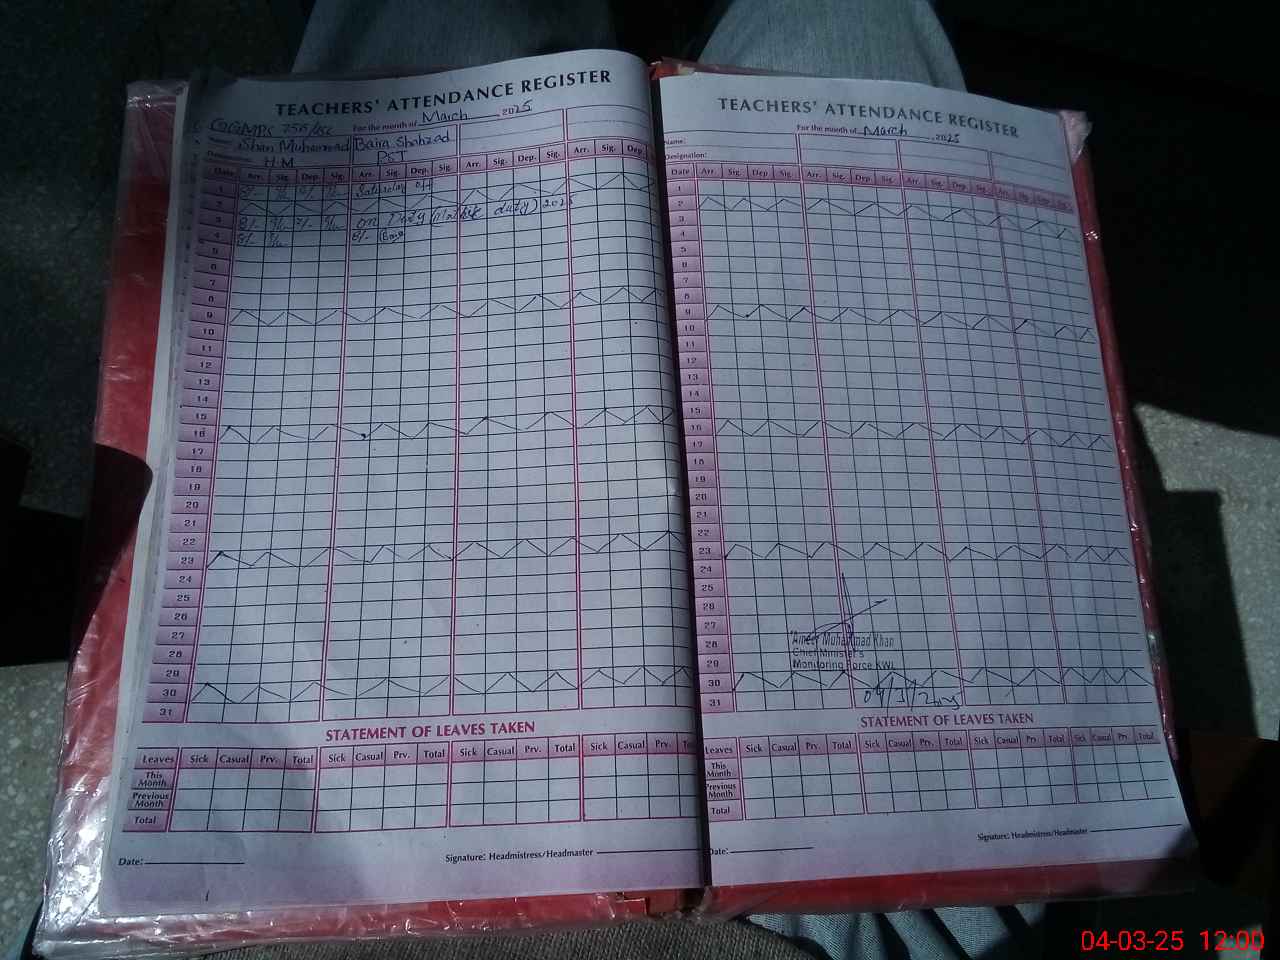 TEACHERS' ATTENDANCE REGISTER
For the month of March, 2025
GGMPS 256/
Name: Shan Muhammad Baira Shahzad
Designation: H.M PST
Date Arr. Sig. Dep. Sig. Arr. Sig. Dep. Sig. Arr. Sig. Dep. Sig. Arr. Sig. Dep.
1 8/- Saturday off
2
3 8/- on Duty 2025
4 8/- 8/-
5
6
7
8
9
10
11
12
13
14
15
16
17
18
19
20
21
22
23
24
25
26
27
28
29
30
31
STATEMENT OF LEAVES TAKEN
Leaves Sick Casual Prv. Total Sick Casual Prv. Total Sick Casual Prv. Total Sick Casual Prv.
This Month
Previous Month
Total
Date:
Signature: Headmistress/Headmaster
TEACHERS' ATTENDANCE REGISTER
For the month of March, 2025
Name:
Designation:
Date Arr. Sig. Dep. Sig. Arr. Sig. Dep. Sig. Arr. Sig. Dep. Sig. Arr.
1
2
3
4
5
6
7
8
9
10
11
12
13
14
15
16
17
18
19
20
21
22
23
24
25
26
27
28
29
30
31
Ameer Muhammad Khan
Chief Minister's
Monitoring Force KWL
04/3/2025
STATEMENT OF LEAVES TAKEN
Leaves Sick Casual Prv. Total Sick Casual Prv. Total Sick Casual Prv Total Sick Casual Prv. Total
This Month
Previous Month
Total
Date:
Signature: Headmistress/Headmaster
04-03-25 12:00